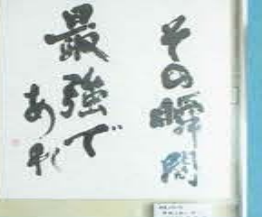 その瞬間
最強で
あれ